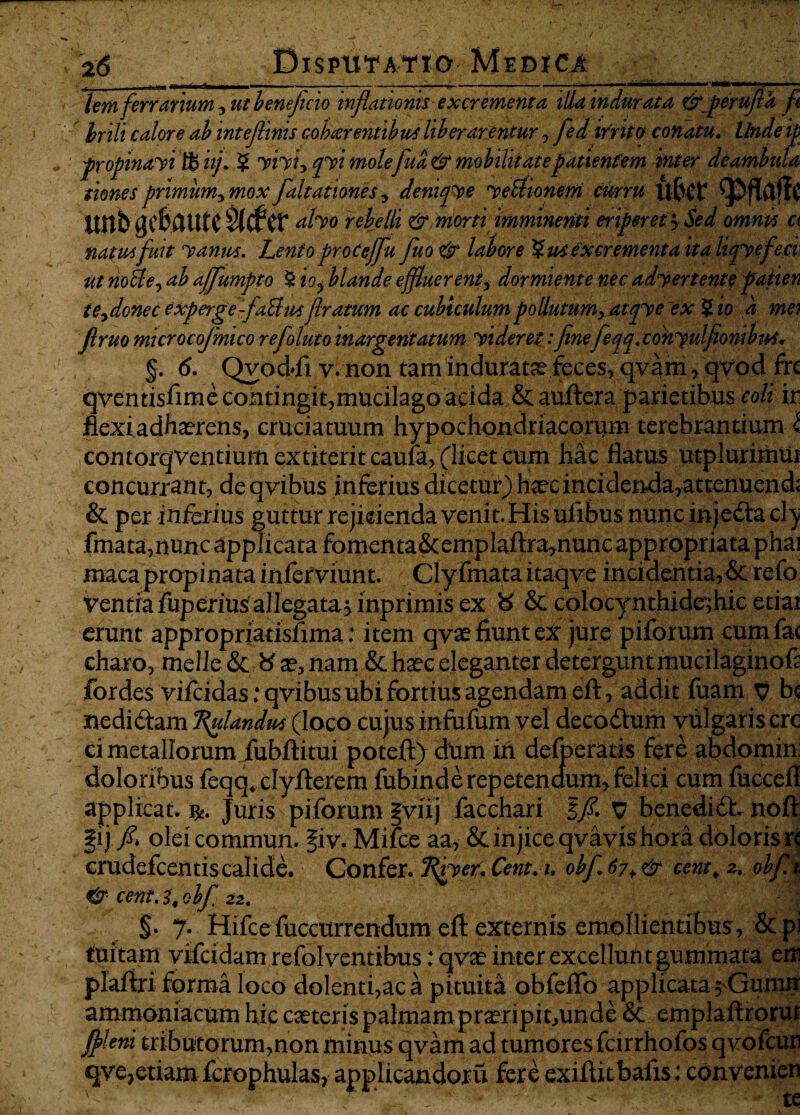 26 DISPUTATIO MEDICA
lem ferrarium, ut beneficio inflationis excrementa illa indurata & perusta
brili calore ab intestinis cohærentibus liberarentur, sed irrito conatu. Unde
propinavi ℔ iij. ☿ vivi, qvi mole sua & mobilitate patientem inter deambula
tiones primùm, mox saltationes, deniqve vectionem curru über Pflaste
und gebaute Aecker alvo rebelli & morti imminenti eriperet; Sed omnis
natus fuit vanus. Lento processu suo & labore ☿us excrementa ita liqvefeci
ut nocte, ab assumpto ☿ io, blande effluerent, dormiente nec advertente patien
te, donec expergefactus stratum ac cubiculum pollutum, atqve ex ☿ io à
struo microcosmico resoluto inargentatum videret: sine seqq. convulsionibus.
§. 6. Qvod-si v. non tam induratæ feces, qvàm, qvod fre
qventissimè contingit, mucilago acida & austera parietibus coli in
flexi adhærens, cruciatuum hypochondriacorum terebrantium
contorqventium extiterit causa, (licet cum hâc flatus utplurimùm
concurrant, de qvibus inferius dicetur) hæc incidenda, attenuenda
& per inferius guttur rejicienda venit. His usibus nunc injecta cly
smata, nunc applicata fomenta & emplastra, nunc appropriata phar
maca propinata inserviunt. Clysmata itaqve incidentia, & reso
ventia superius allegata; inprimis ex ☿ & colocynthide; hic etiam
erunt appropriatissima: item qvæ fiunt ex jure pisorum cum sac
charo, melle & ☿ æ, nam & hæc eleganter detergunt mucilaginosas
sordes viscidas: qvibus ubi fortius agendam est, addit suam ▽ be
nedictam Rulandus (loco cujus infusum vel decoctum vulgaris cro
ci metallorum substitui potest) dum in desperatis ferè abdomin
doloribus seqq. clysterem subinde repetendum, felici cum successu
applicat. ℞. Juris pisorum ℥viij sacchari ℥ß. ▽ benedict. nost
℥ij ß. olei commun. ℥iv. Misce aa, & injice qvâvis horâ doloris re
crudescentis calidè. Confer. River. Cent. 1. obs. 67. & cent. 2. obs.
& cent. 3. obs. 22.
§. 7. Hisce succurrendum est externis emollientibus, & pi
tuitam viscidam resolventibus: qvæ inter excellunt gummata em
plastri formâ loco dolenti, ac à pituitâ obsesso applicata; Gumm
ammoniacum hîc cæteris palmam præripit, unde & emplastrorum
spleni tributorum, non minus qvàm ad tumores scirrhosos qvoscun
qve, etiam scrophulas, applicandorū ferè existit basis: convenien
te